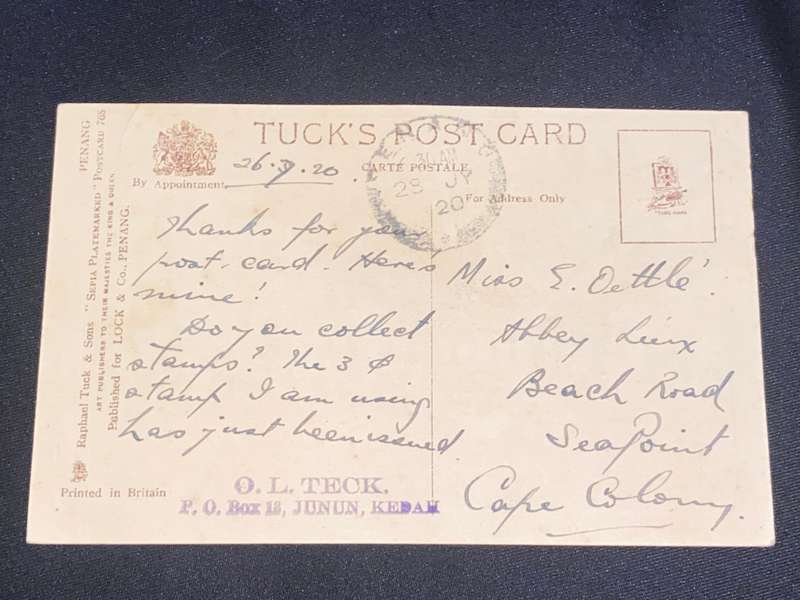 TUCK'S POST CARD
CARTE POSTALE
By Appointment
For Address Only
26.7.20.
PENANG
28 JY
20
Thanks for your
post-card. Here's
mine!
Do you collect
stamps? The 3 ¢
stamp I am using
has just been issued
Miss E. Oettlé.
Abbey
Beach Road
Sea Point
Cape Colony.
O. L. TECK.
P. O. Box 13, JUNUN, KEDAH
Raphael Tuck & Sons "Sepia Platemarked" Postcard 765 PENANG
ART PUBLISHERS TO THEIR MAJESTIES THE KING & QUEEN.
Published for LOCK & Co., PENANG.
Printed in Britain
TRADE MARK